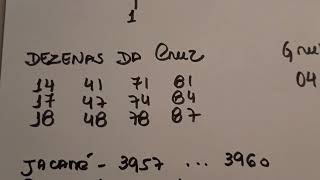 1
DEZENAS DA CRUZ
14 41 71 81
17 47 74 84
18 48 78 87
04
JACARÉ - 3957 ... 3960